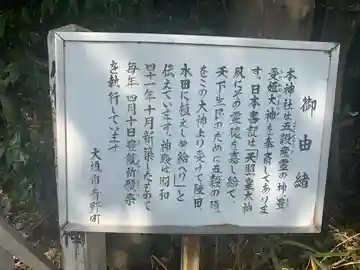 御由緒
本神社は五穀食霊の神豊
受姫大神を奉斎してありま
す。日本書紀は「天照皇大神
夙にその霊徳を嘉し給て
天下生民のために五穀の種
をこの大神より受けて陸田
水田に植えしめ給へり」と
伝えています。神殿は昭和
四十一年十月新築したもので
毎年四月十日豊穣祈願祭
を執行しています
大垣市青野町